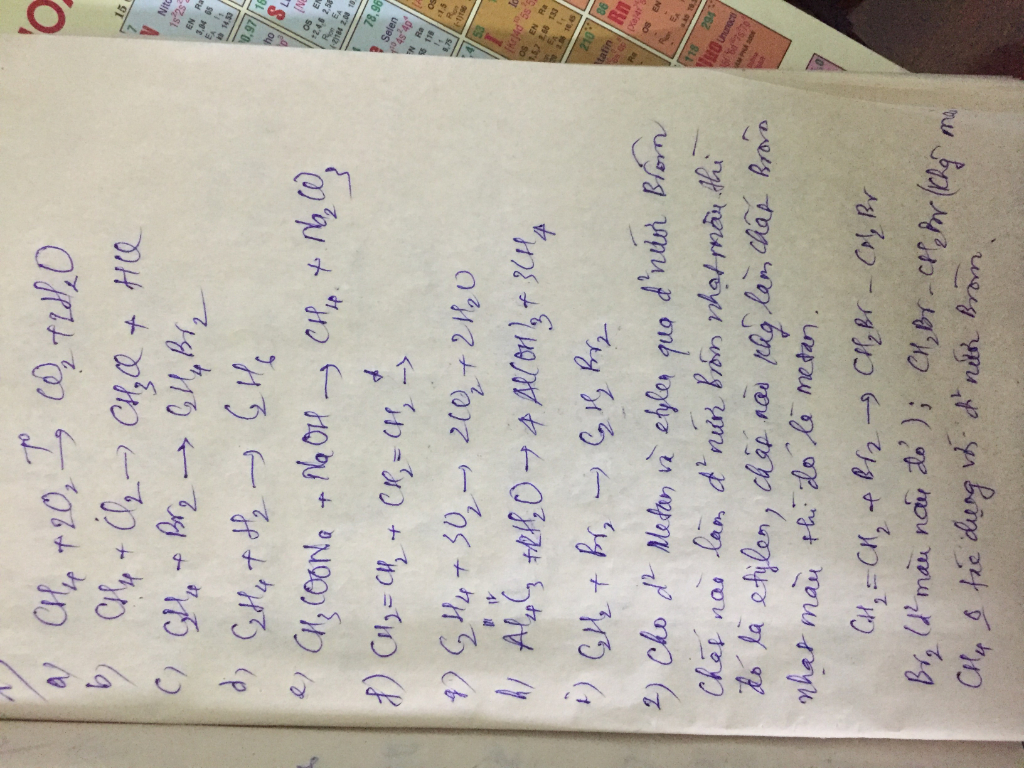 1)
a) CH4 + 2O2 →T° CO2 + 2H2O
b) CH4 + Cl2 → CH3Cl + HCl
c) C2H4 + Br2 → C2H4Br2
d) C2H4 + H2 → C2H6
e) CH3COONa + NaOH → CH4 + Na2CO3
f) CH2=CH2 + CH2=CH2 →
g) C2H4 + 3O2 → 2CO2 + 2H2O
h) Al4C3 + H2O → 4Al(OH)3 + 3CH4
i) C2H2 + Br2 → C2H2Br2
2) Cho d² Metan và etylen qua d² nước Brôm
Chất nào làm d² nước Brôm nhạt màu thì
đó là etylen, chất nào khg làm chất Brôm
nhạt màu thì đó là metan.
CH2=CH2 + Br2 → CH2Br - CH2Br
Br2 (d² màu nâu đỏ); CH2Br-CH2Br (khg mà
CH4 tác dụng vs d² nước Brôm.
N
I
S
Rn
Uno
Selen
78.96
210
118
53